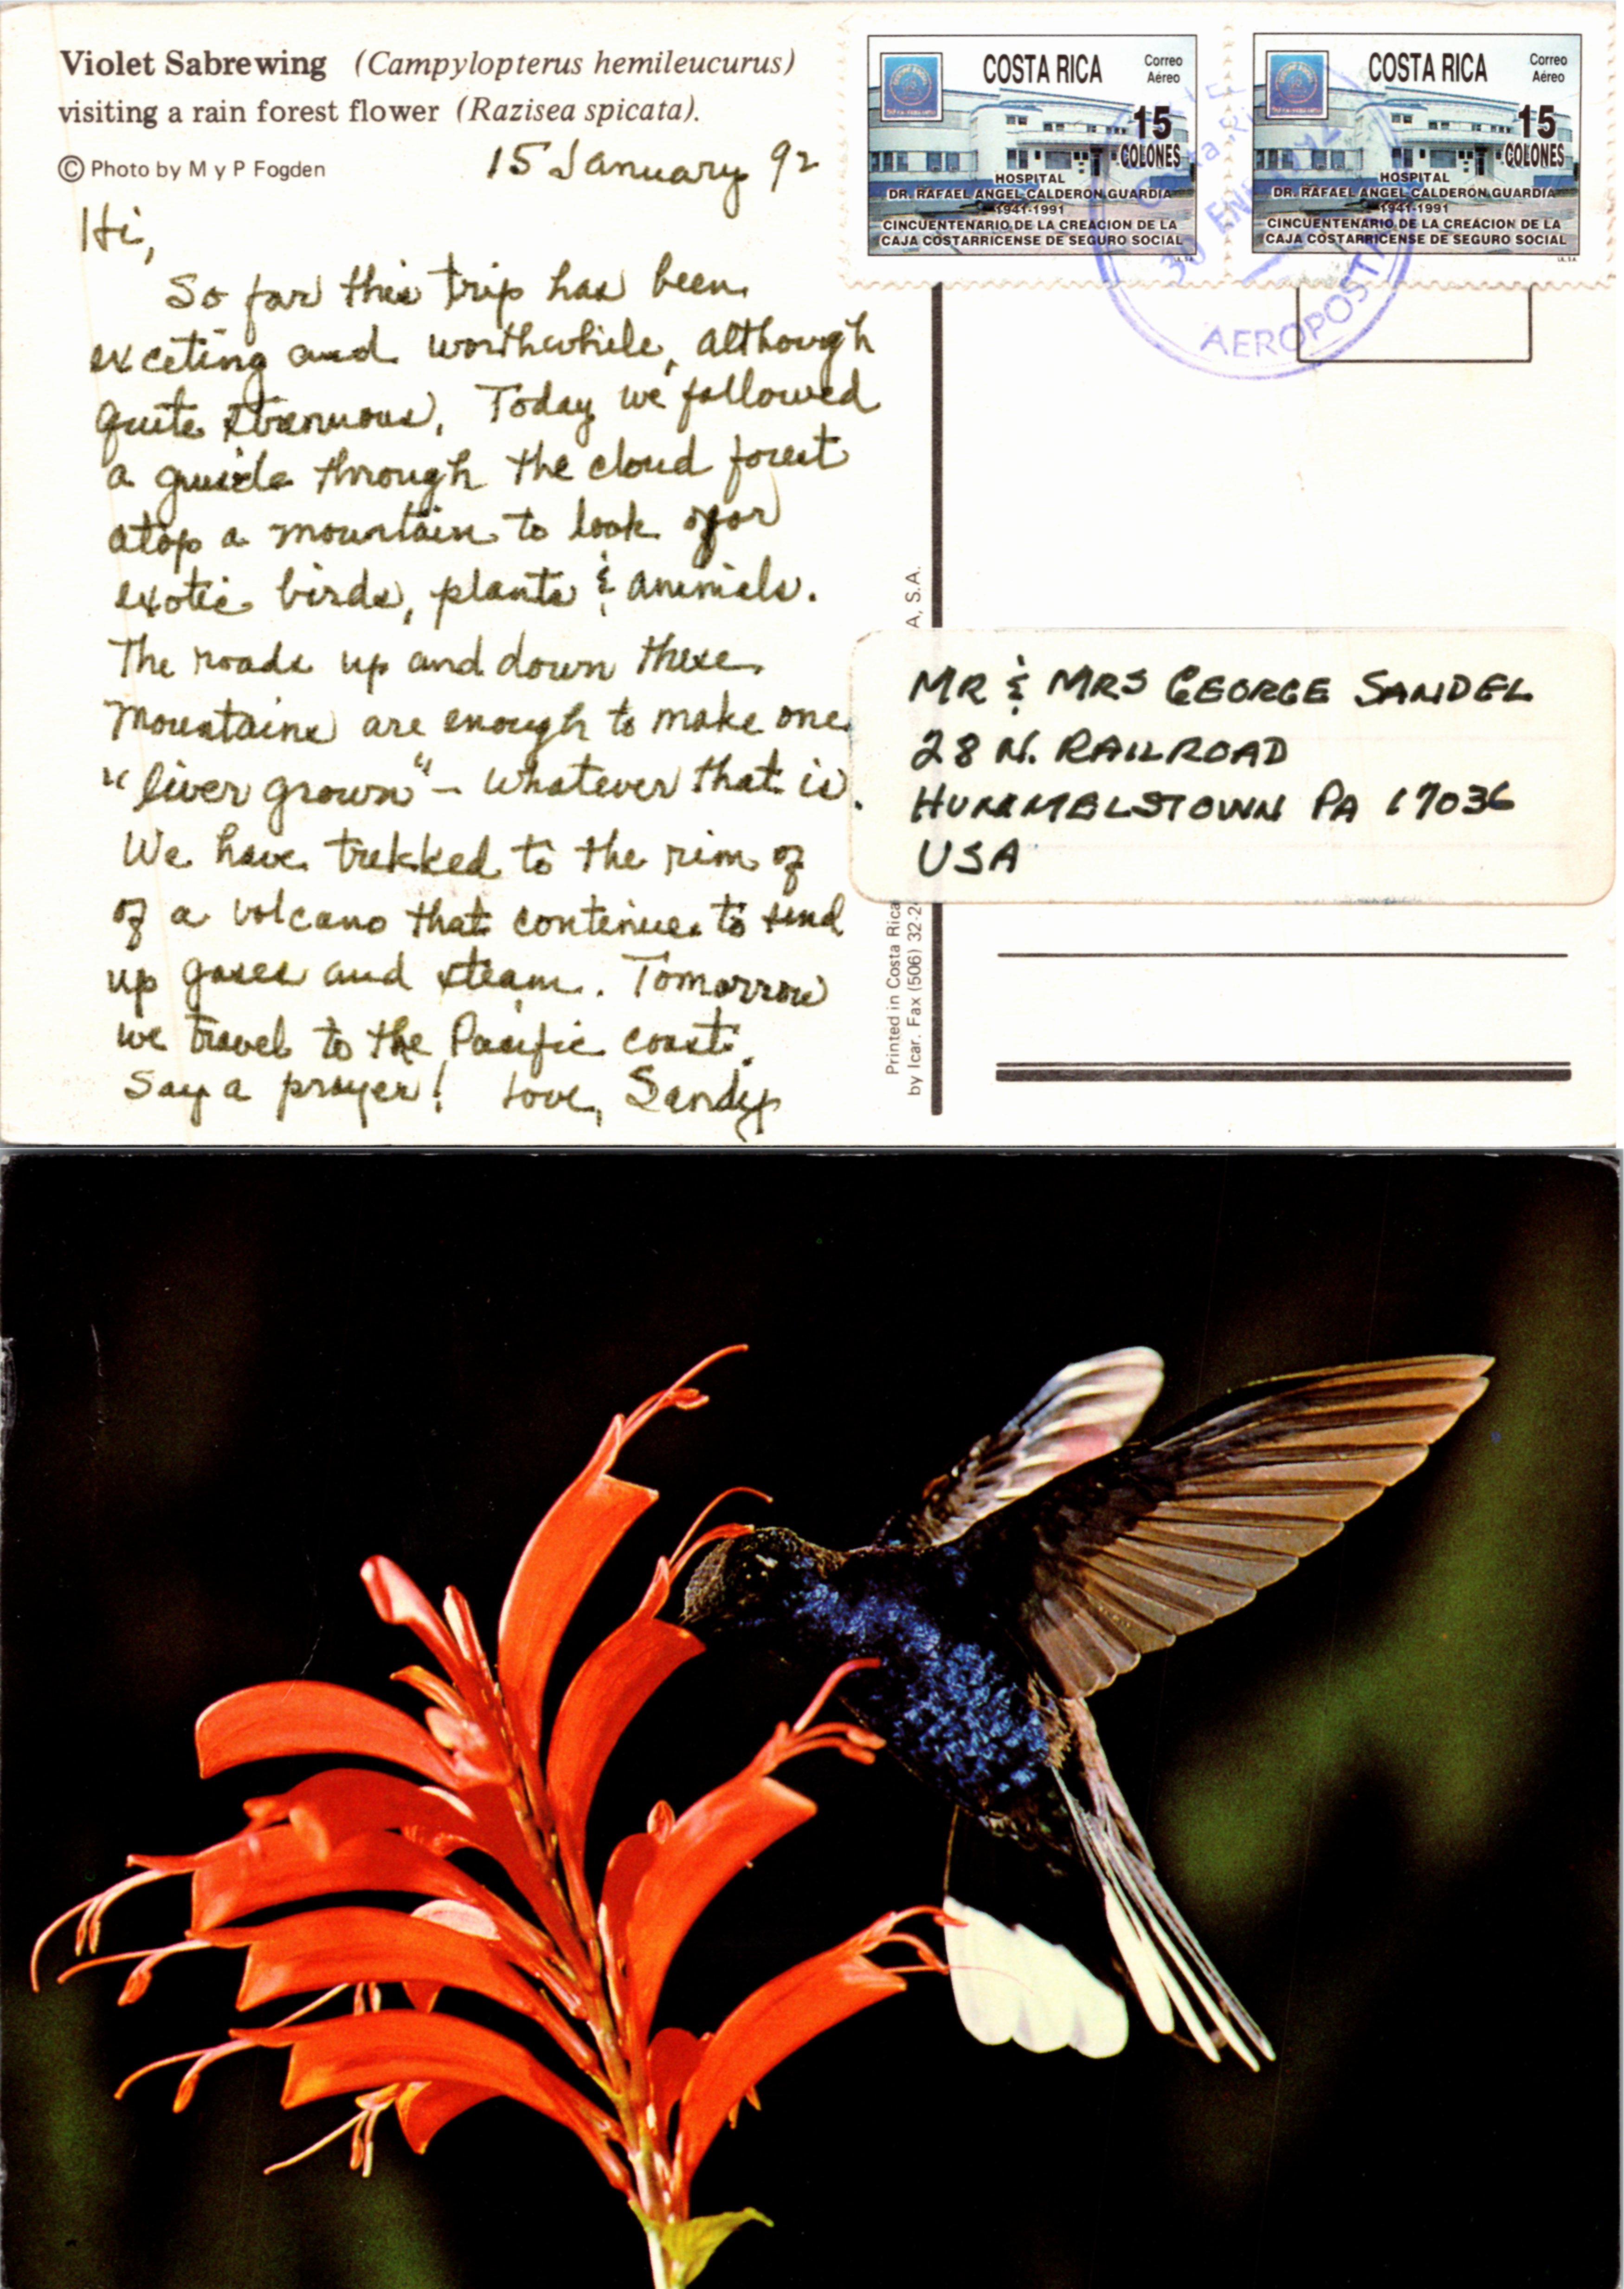 Violet Sabrewing (Campylopterus hemileucurus)
visiting a rain forest flower (Razisea spicata).
© Photo by M y P Fogden
15 January 92
Hi,
So far this trip has been
exceting and worthwhile, although
quite strenuous. Today we followed
a guide through the cloud forest
atop a mountain to look for
exotic birds, plants & animals.
The roads up and down these
mountains are enough to make one
"liver grown" - whatever that is.
We have trekked to the rim of
of a volcano that continues to send
up gases and steam. Tomorrow
we travel to the Pacific coast.
Say a prayer! Love, Sandy
COSTA RICA
Correo
Aéreo
15
COLONES
HOSPITAL
DR. RAFAEL ANGEL CALDERON GUARDIA
1941-1991
CINCUENTENARIO DE LA CREACION DE LA
CAJA COSTARRICENSE DE SEGURO SOCIAL
COSTA RICA
Correo
Aéreo
15
COLONES
HOSPITAL
DR. RAFAEL ANGEL CALDERON GUARDIA
1941-1991
CINCUENTENARIO DE LA CREACION DE LA
CAJA COSTARRICENSE DE SEGURO SOCIAL
30 ENE
AEROPOST
A, S.A.
Printed in Costa Rica
by Icar. Fax (506) 32-2
MR & MRS GEORGE SANDEL
28 N. RAILROAD
HUMMELSTOWN PA 17036
USA